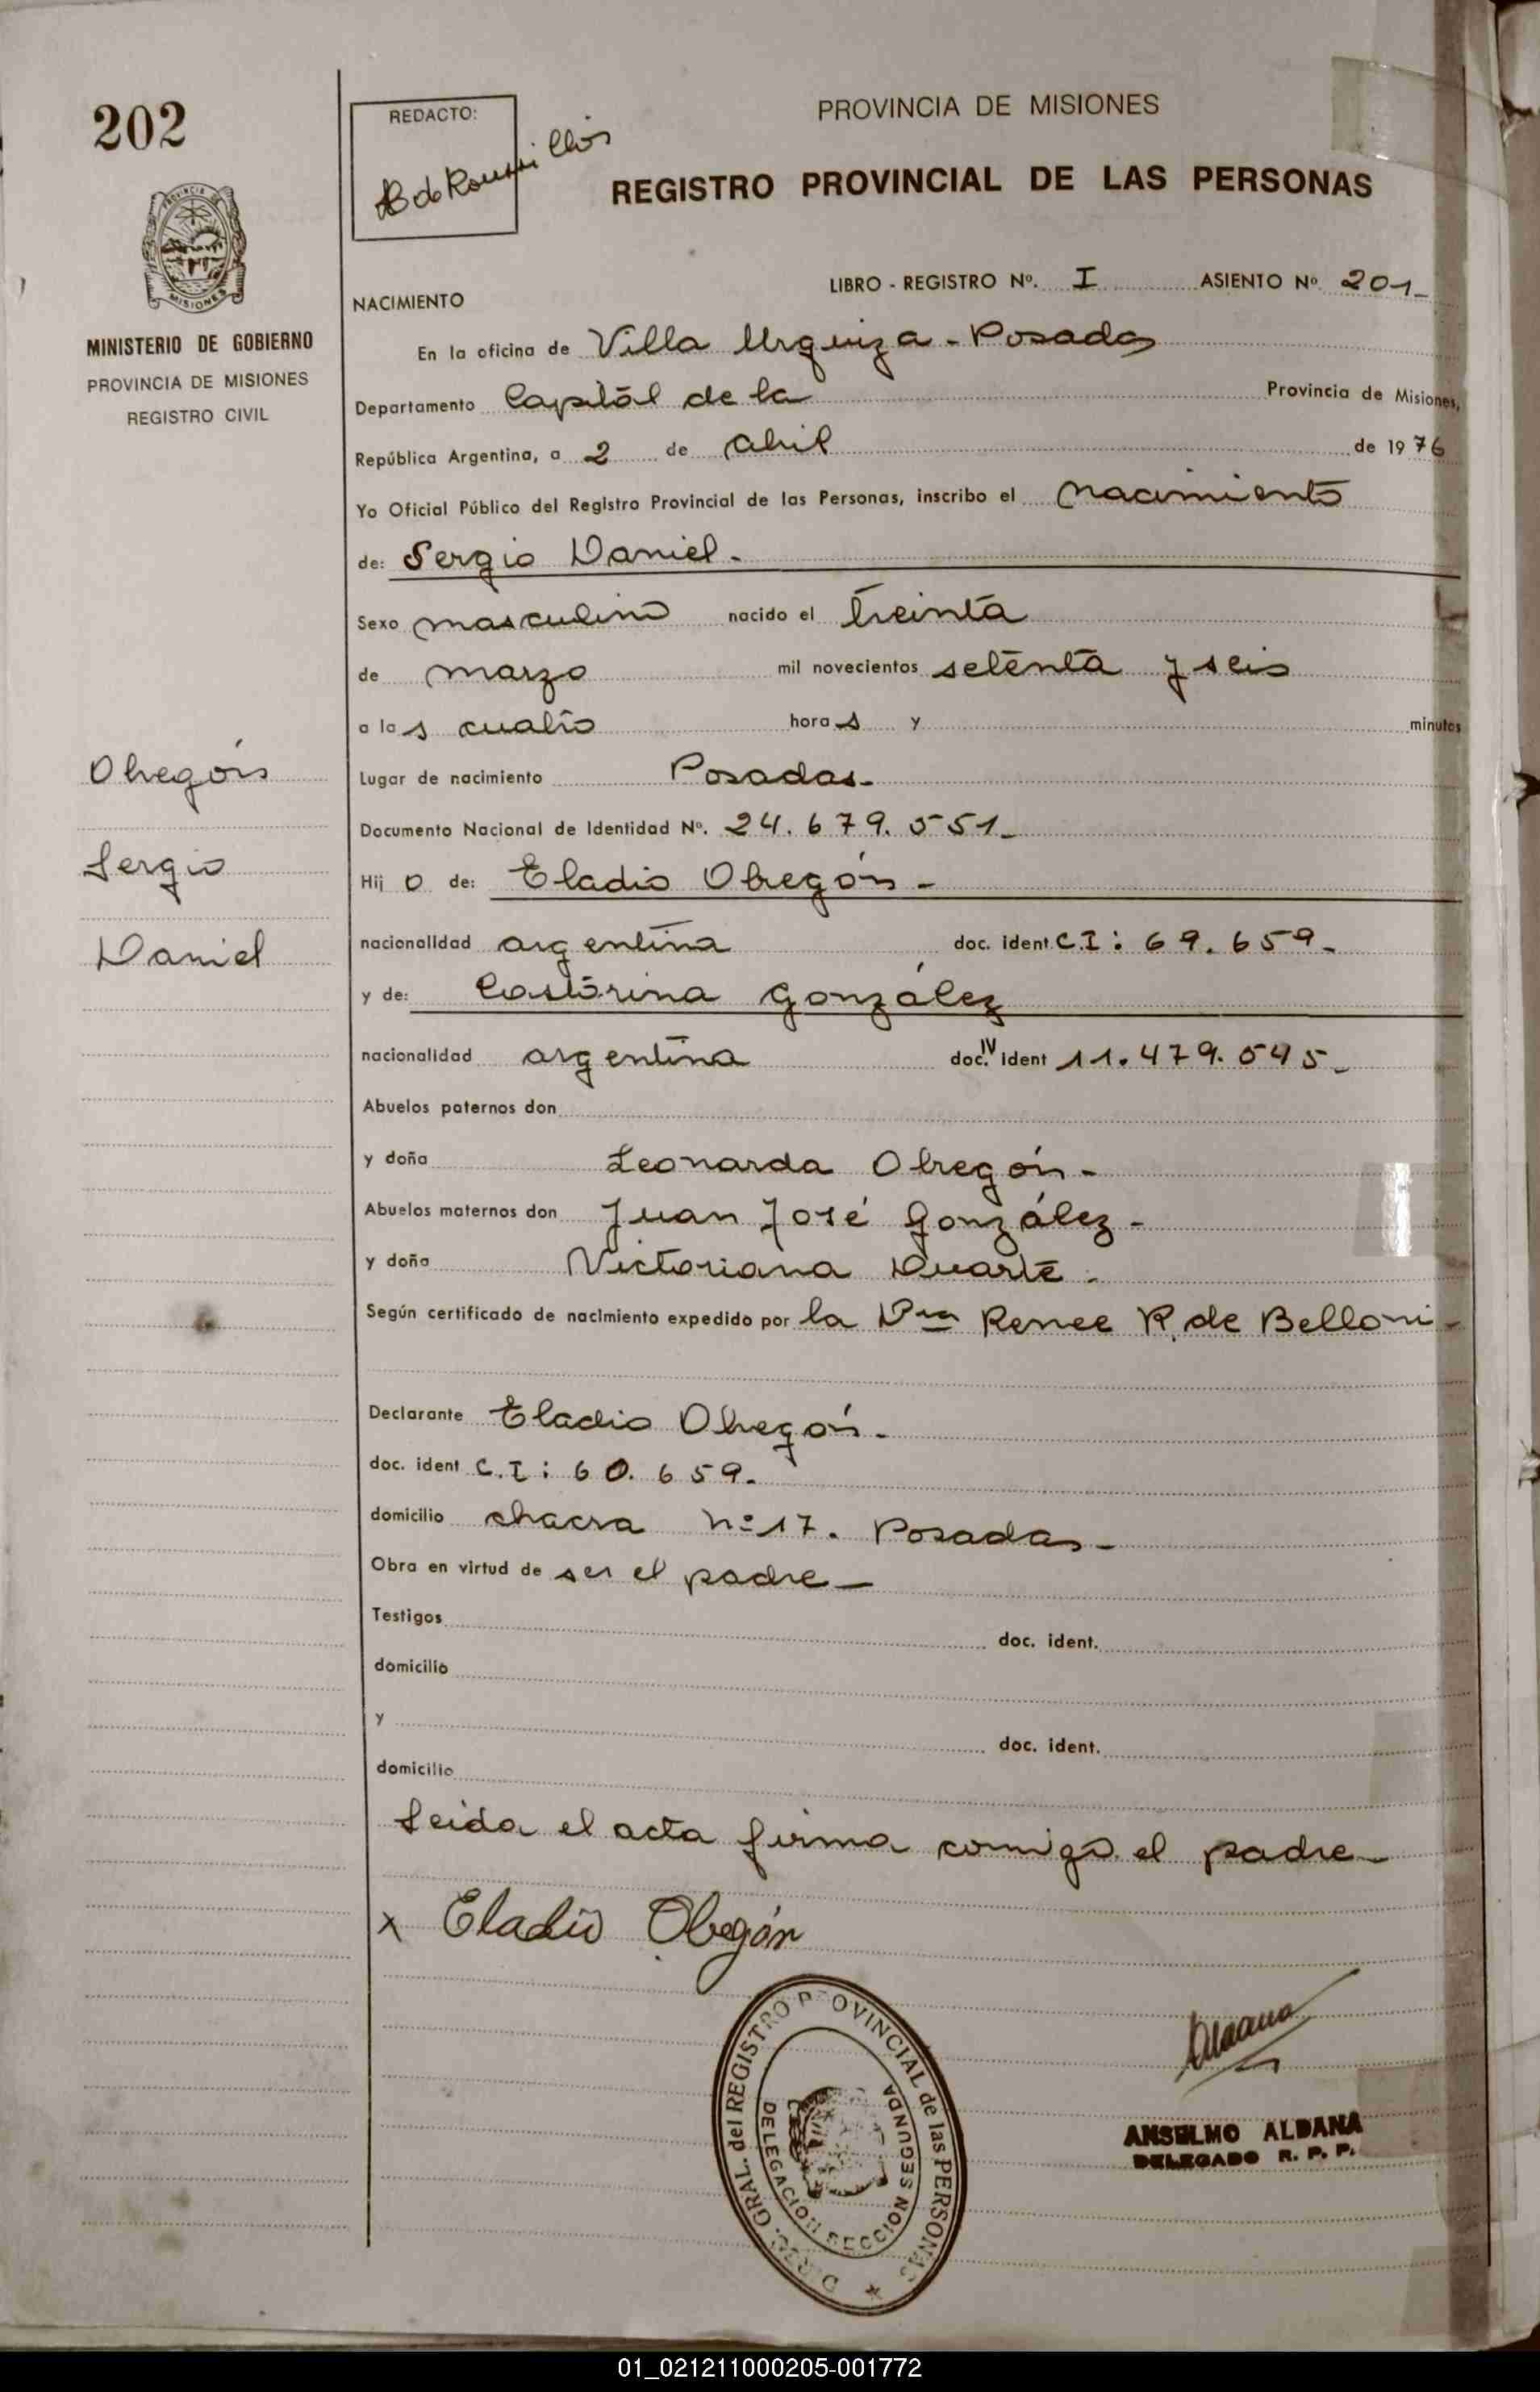 202
REDACTO:
PROVINCIA DE MISIONES
REGISTRO PROVINCIAL DE LAS PERSONAS
PROVINCIA DE
MISIONES
MINISTERIO DE GOBIERNO
PROVINCIA DE MISIONES
REGISTRO CIVIL
LIBRO - REGISTRO Nº. I ASIENTO Nº. 201-
NACIMIENTO
En la oficina de Villa Urquiza - Posadas
Departamento Capital de la Provincia de Misiones,
República Argentina, a 2 de abril de 1976
Yo Oficial Público del Registro Provincial de las Personas, inscribo el nacimiento
de: Sergio Daniel.-
Sexo masculino nacido el treinta
de marzo mil novecientos setenta y seis
a las cuatro horas y minutos
Obregón
Lugar de nacimiento Posadas-
Documento Nacional de Identidad Nº. 24.679.551-
Sergio
Hijo de: Eladio Obregón-
Daniel
nacionalidad argentina doc. ident. C.I: 69.659-
y de: Castorina González
nacionalidad argentina doc. IV ident 11.479.545-
Abuelos paternos don
y doña Leonarda Obregón-
Abuelos maternos don Juan José González-
y doña Victoriana Duarte.
Según certificado de nacimiento expedido por la Dra Renee R. de Belloni-
Declarante Eladio Obregón-
doc. ident C.I: 60.659.
domicilio chacra nº 17. Posadas-
Obra en virtud de ser el padre-
Testigos doc. ident.
domicilio
y doc. ident.
domicilio
Leida el acta firma comigo el padre-
x Eladio Obregón
DIREC. GRAL. del REGISTRO PROVINCIAL de las PERSONAS
DELEGACION SECCION SEGUNDA
Aldana
ANSELMO ALDANA
DELEGADO R. P. P.
01_021211000205-001772